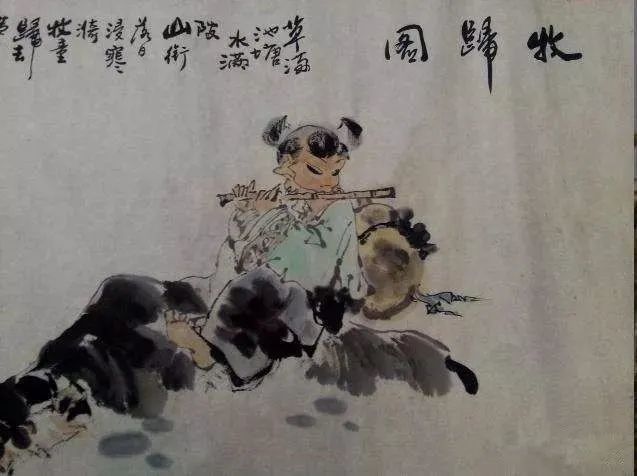 牧歸图
草滿
池塘
水滿
陂
山衔
落日
浸寒
漪
牧童
歸去